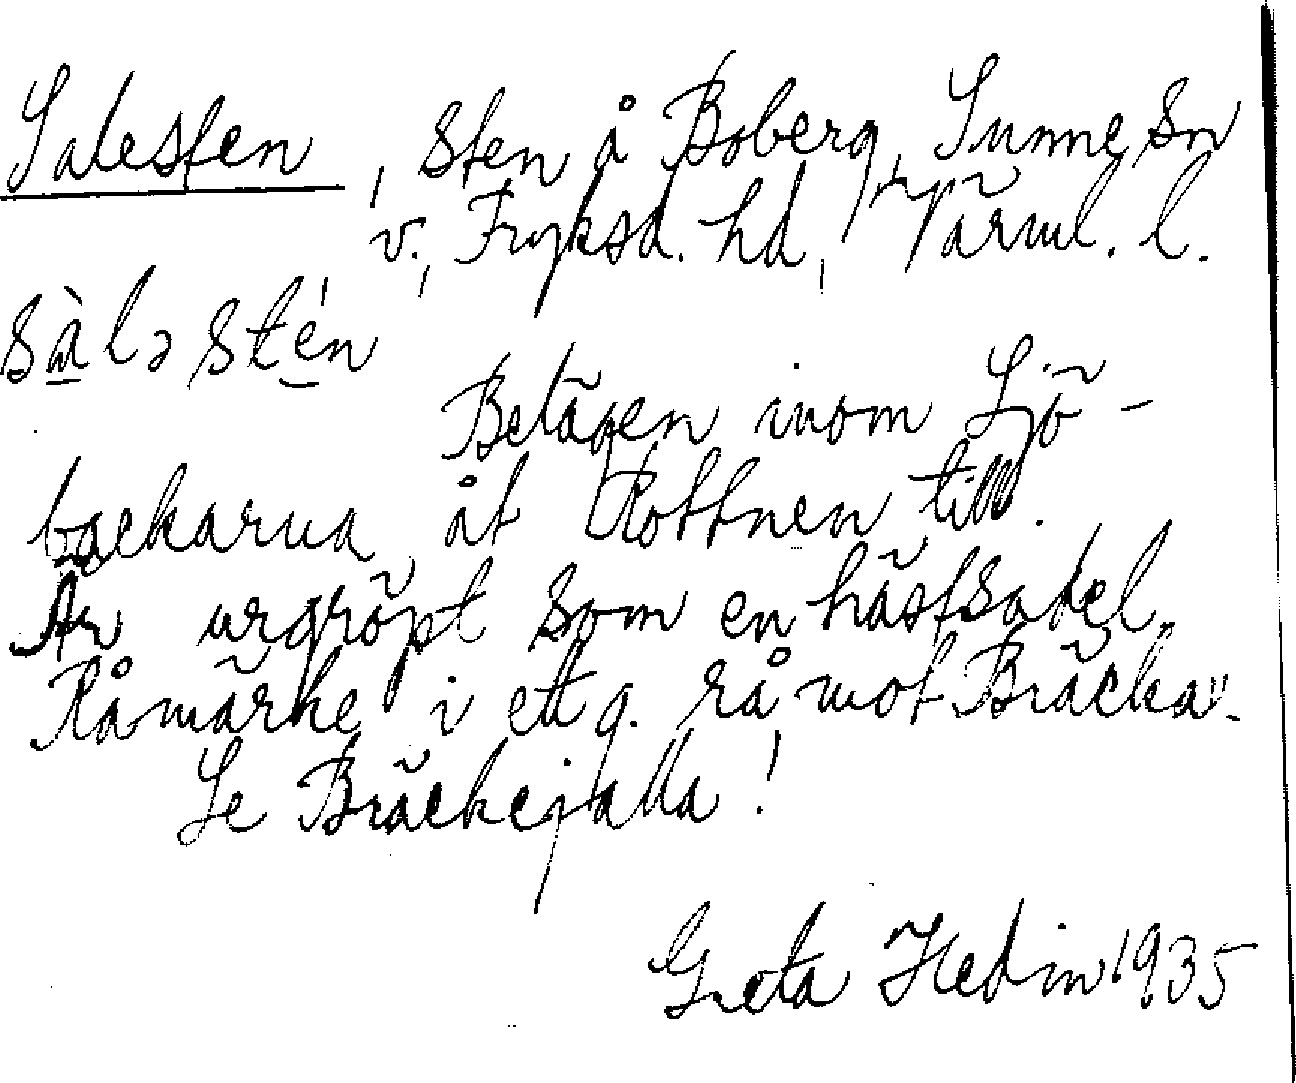 Salesten, Sten å Boberg, Sunne sn
v., Fryksd. hd, Värml. l.
sàlə stén
Belägen inom Sjö-
backarna åt Rottnen till.
Är urgröpt som en hästsadel.
Råmärke i ett g. rå mot Bräcka".
Se Bräckejälla!
Greta Hedin 1935